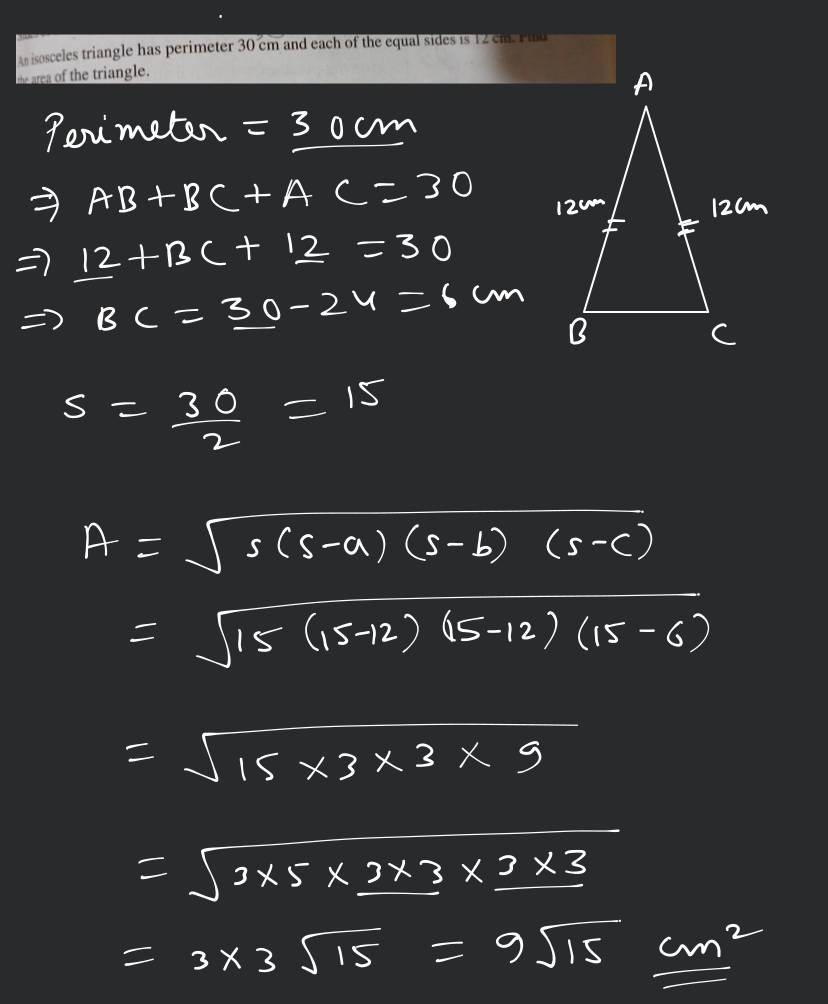 An isosceles triangle has perimeter 30 cm and each of the equal sides is 12 cm. Find
the area of the triangle.
A
Perimeter = 30cm
⇒ AB+BC+AC=30
12cm
12cm
⇒ 12+BC+12=30
⇒ BC=30-24=6cm
B
C
S = 30/2 = 15
A = √s(s-a)(s-b)(s-c)
= √15(15-12)(15-12)(15-6)
= √15×3×3×9
= √3×5×3×3×3×3
= 3×3√15 = 9√15 cm²